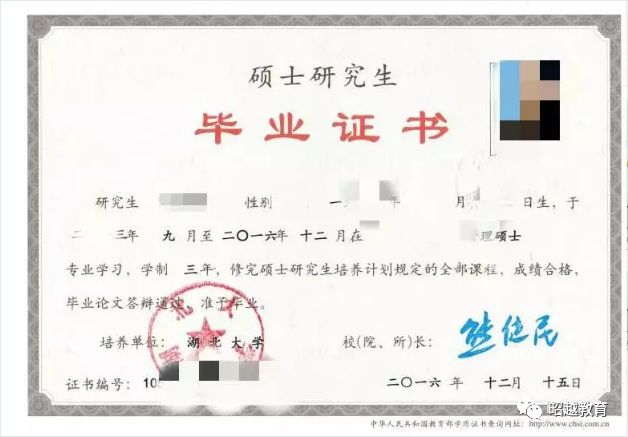 硕士研究生
毕业证书
研究生 性别 一 年 月 日生，于
二 三年 九 月至 二〇一六年 十二 月在 管理硕士
专业学习，学制 三年，修完硕士研究生培养计划规定的全部课程，成绩合格，
毕业论文答辩通过，准予毕业。
培养单位： 湖北大学 校(院、所)长： 熊健民
证书编号： 105 二〇一六 年 十二月 十五日
中华人民共和国教育部学历证书查询网址： http://www.chsi.com.cn
昭越教育